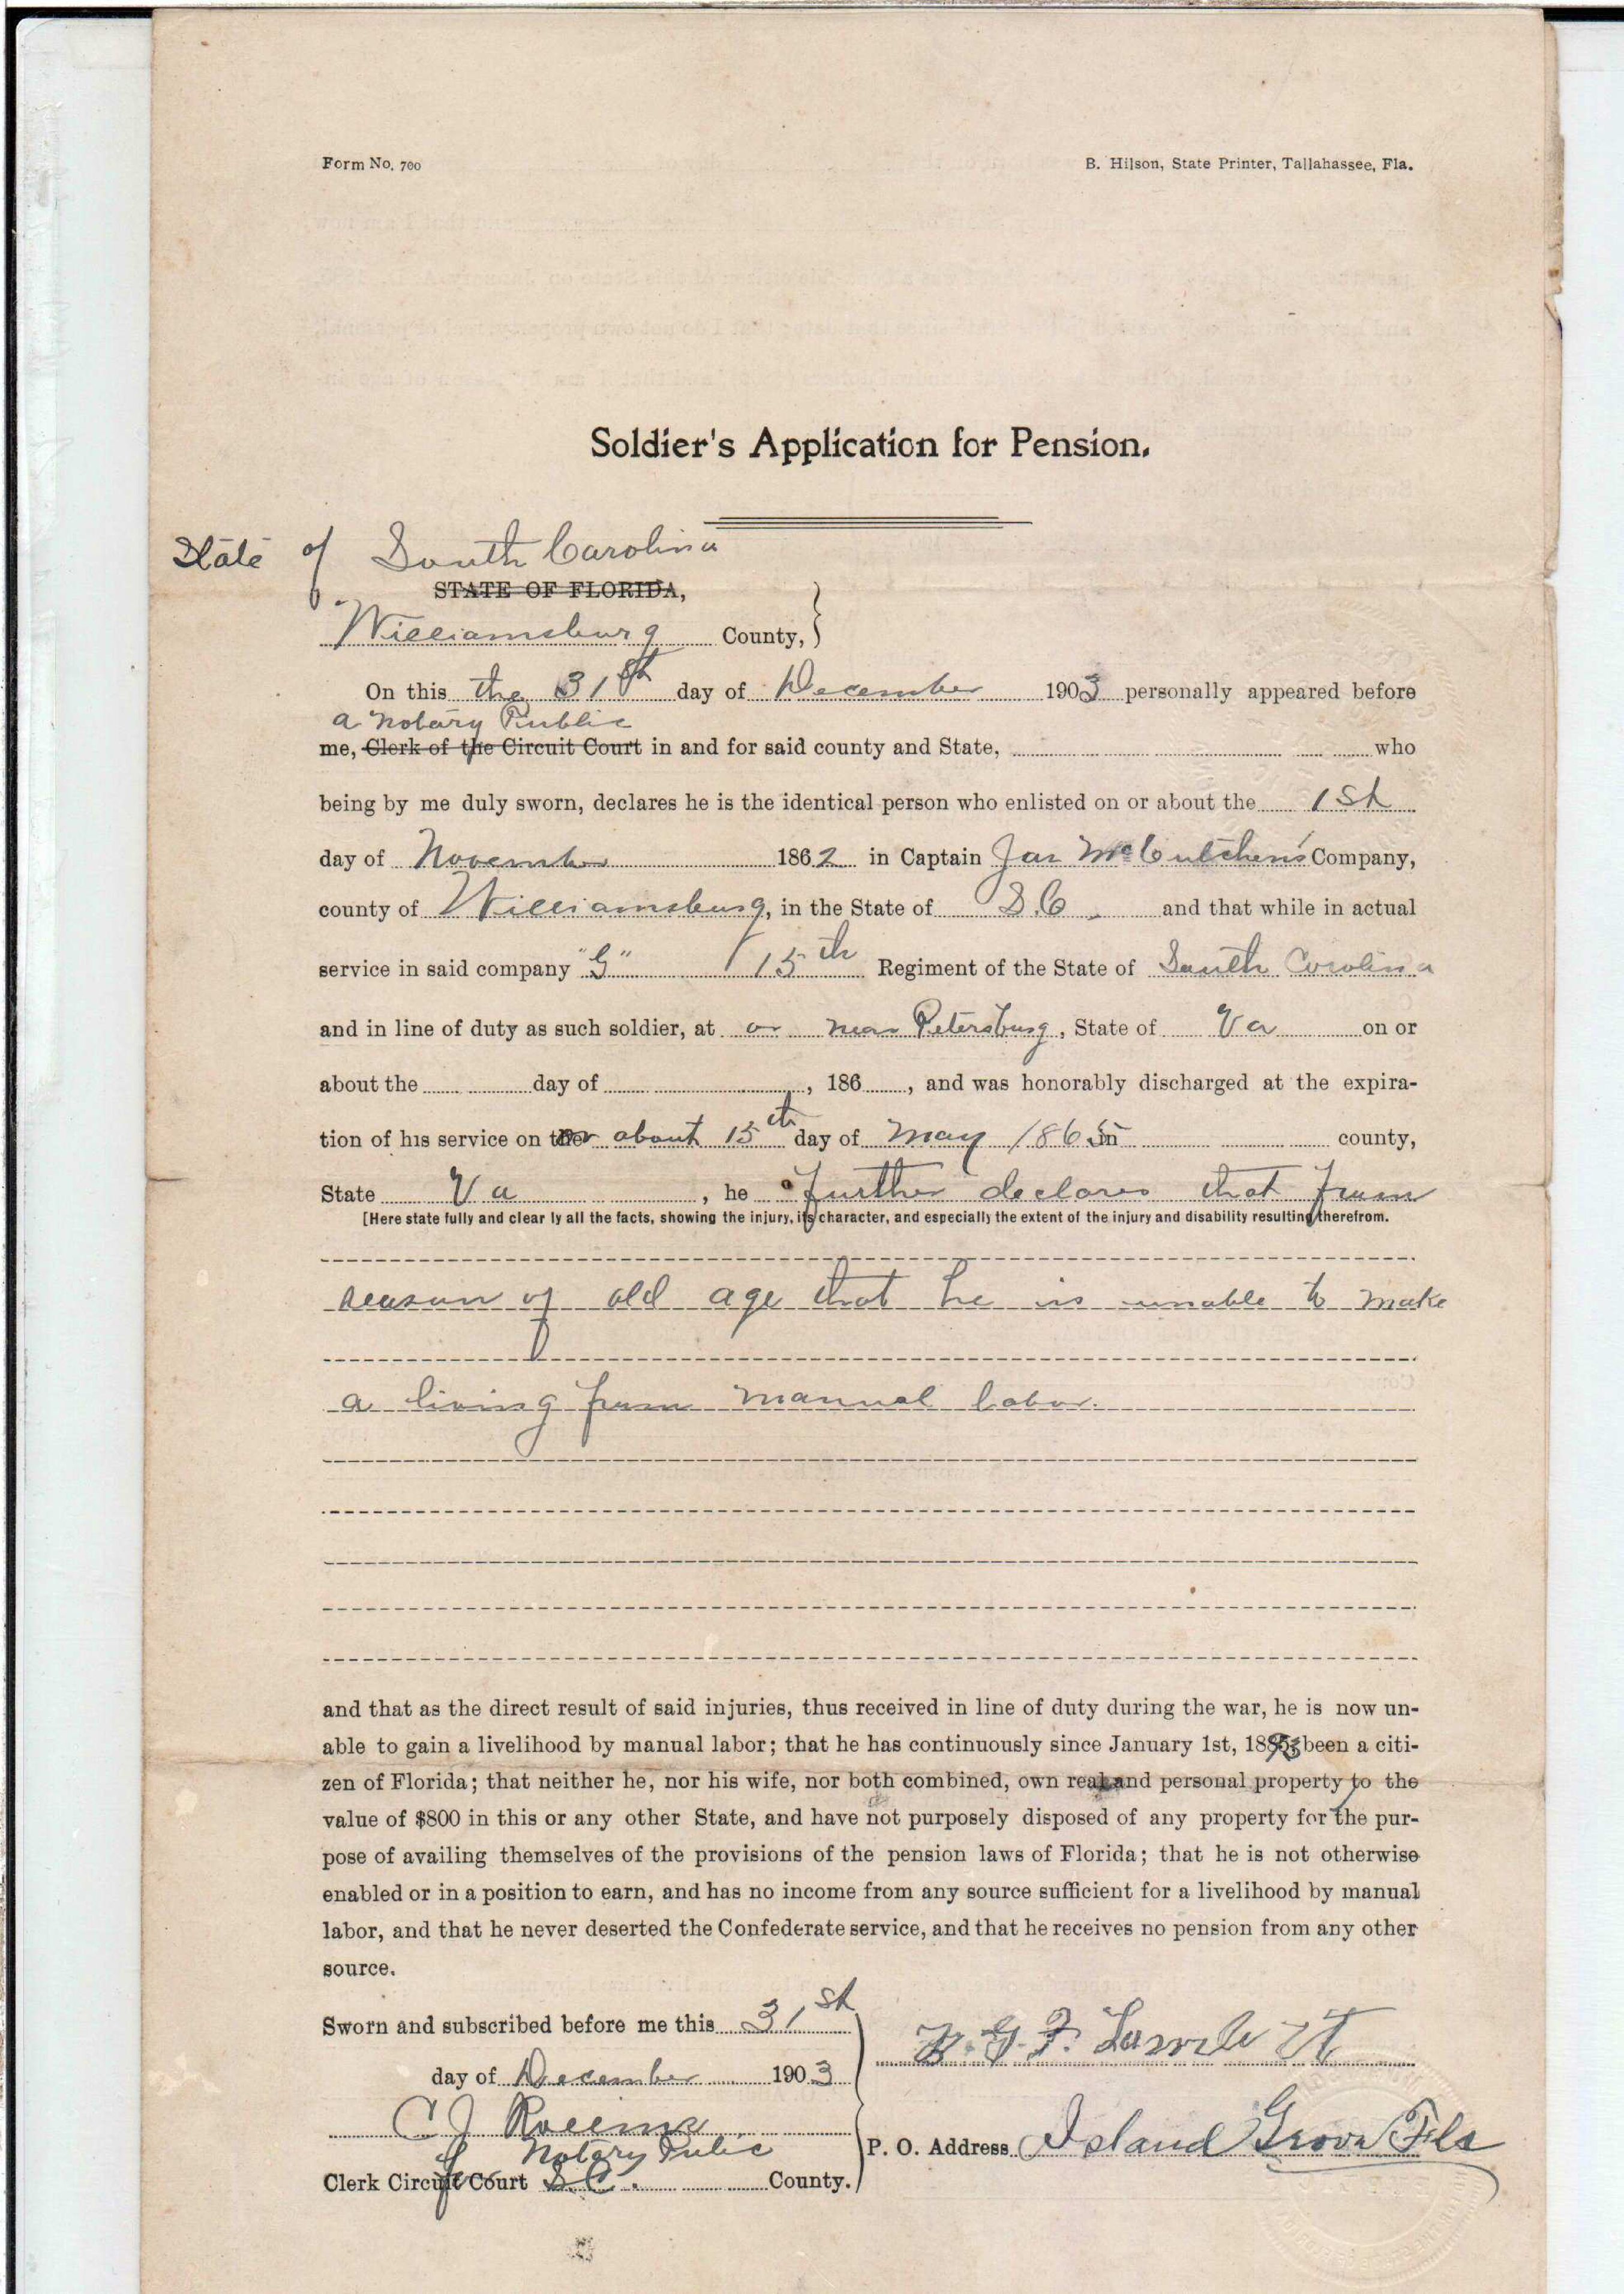 Form No. 700
B. Hilson, State Printer, Tallahassee, Fla.
Soldier's Application for Pension.
State of South Carolina
STATE OF FLORIDA,
Williamsburg County,
On this the 31st day of December 1903 personally appeared before
a Notary Public
me, Clerk of the Circuit Court in and for said county and State, who
being by me duly sworn, declares he is the identical person who enlisted on or about the 1st
day of November 1862 in Captain Jas McCutchen's Company,
county of Williamsburg, in the State of S.C. and that while in actual
service in said company "G" 15th Regiment of the State of South Carolina
and in line of duty as such soldier, at or near Petersburg, State of Va on or
about the day of , 186 , and was honorably discharged at the expira-
tion of his service on or about 15th day of May 1865 in county,
State Va , he further declares that from
[Here state fully and clear ly all the facts, showing the injury, its character, and especially the extent of the injury and disability resulting therefrom.
reason of old age that he is unable to make
a living from manual labor.
and that as the direct result of said injuries, thus received in line of duty during the war, he is now un-
able to gain a livelihood by manual labor; that he has continuously since January 1st, been a citi-
zen of Florida; that neither he, nor his wife, nor both combined, own real and personal property to the
value of $800 in this or any other State, and have not purposely disposed of any property for the pur-
pose of availing themselves of the provisions of the pension laws of Florida; that he is not otherwise
enabled or in a position to earn, and has no income from any source sufficient for a livelihood by manual
labor, and that he never deserted the Confederate service, and that he receives no pension from any other
source.
Sworn and subscribed before me this 31st
day of December 1903
C J Rollins
Notary Pulic
Clerk Circuit Court for S.C. County.
G. F. Lambert
P. O. Address Island Grove Fla